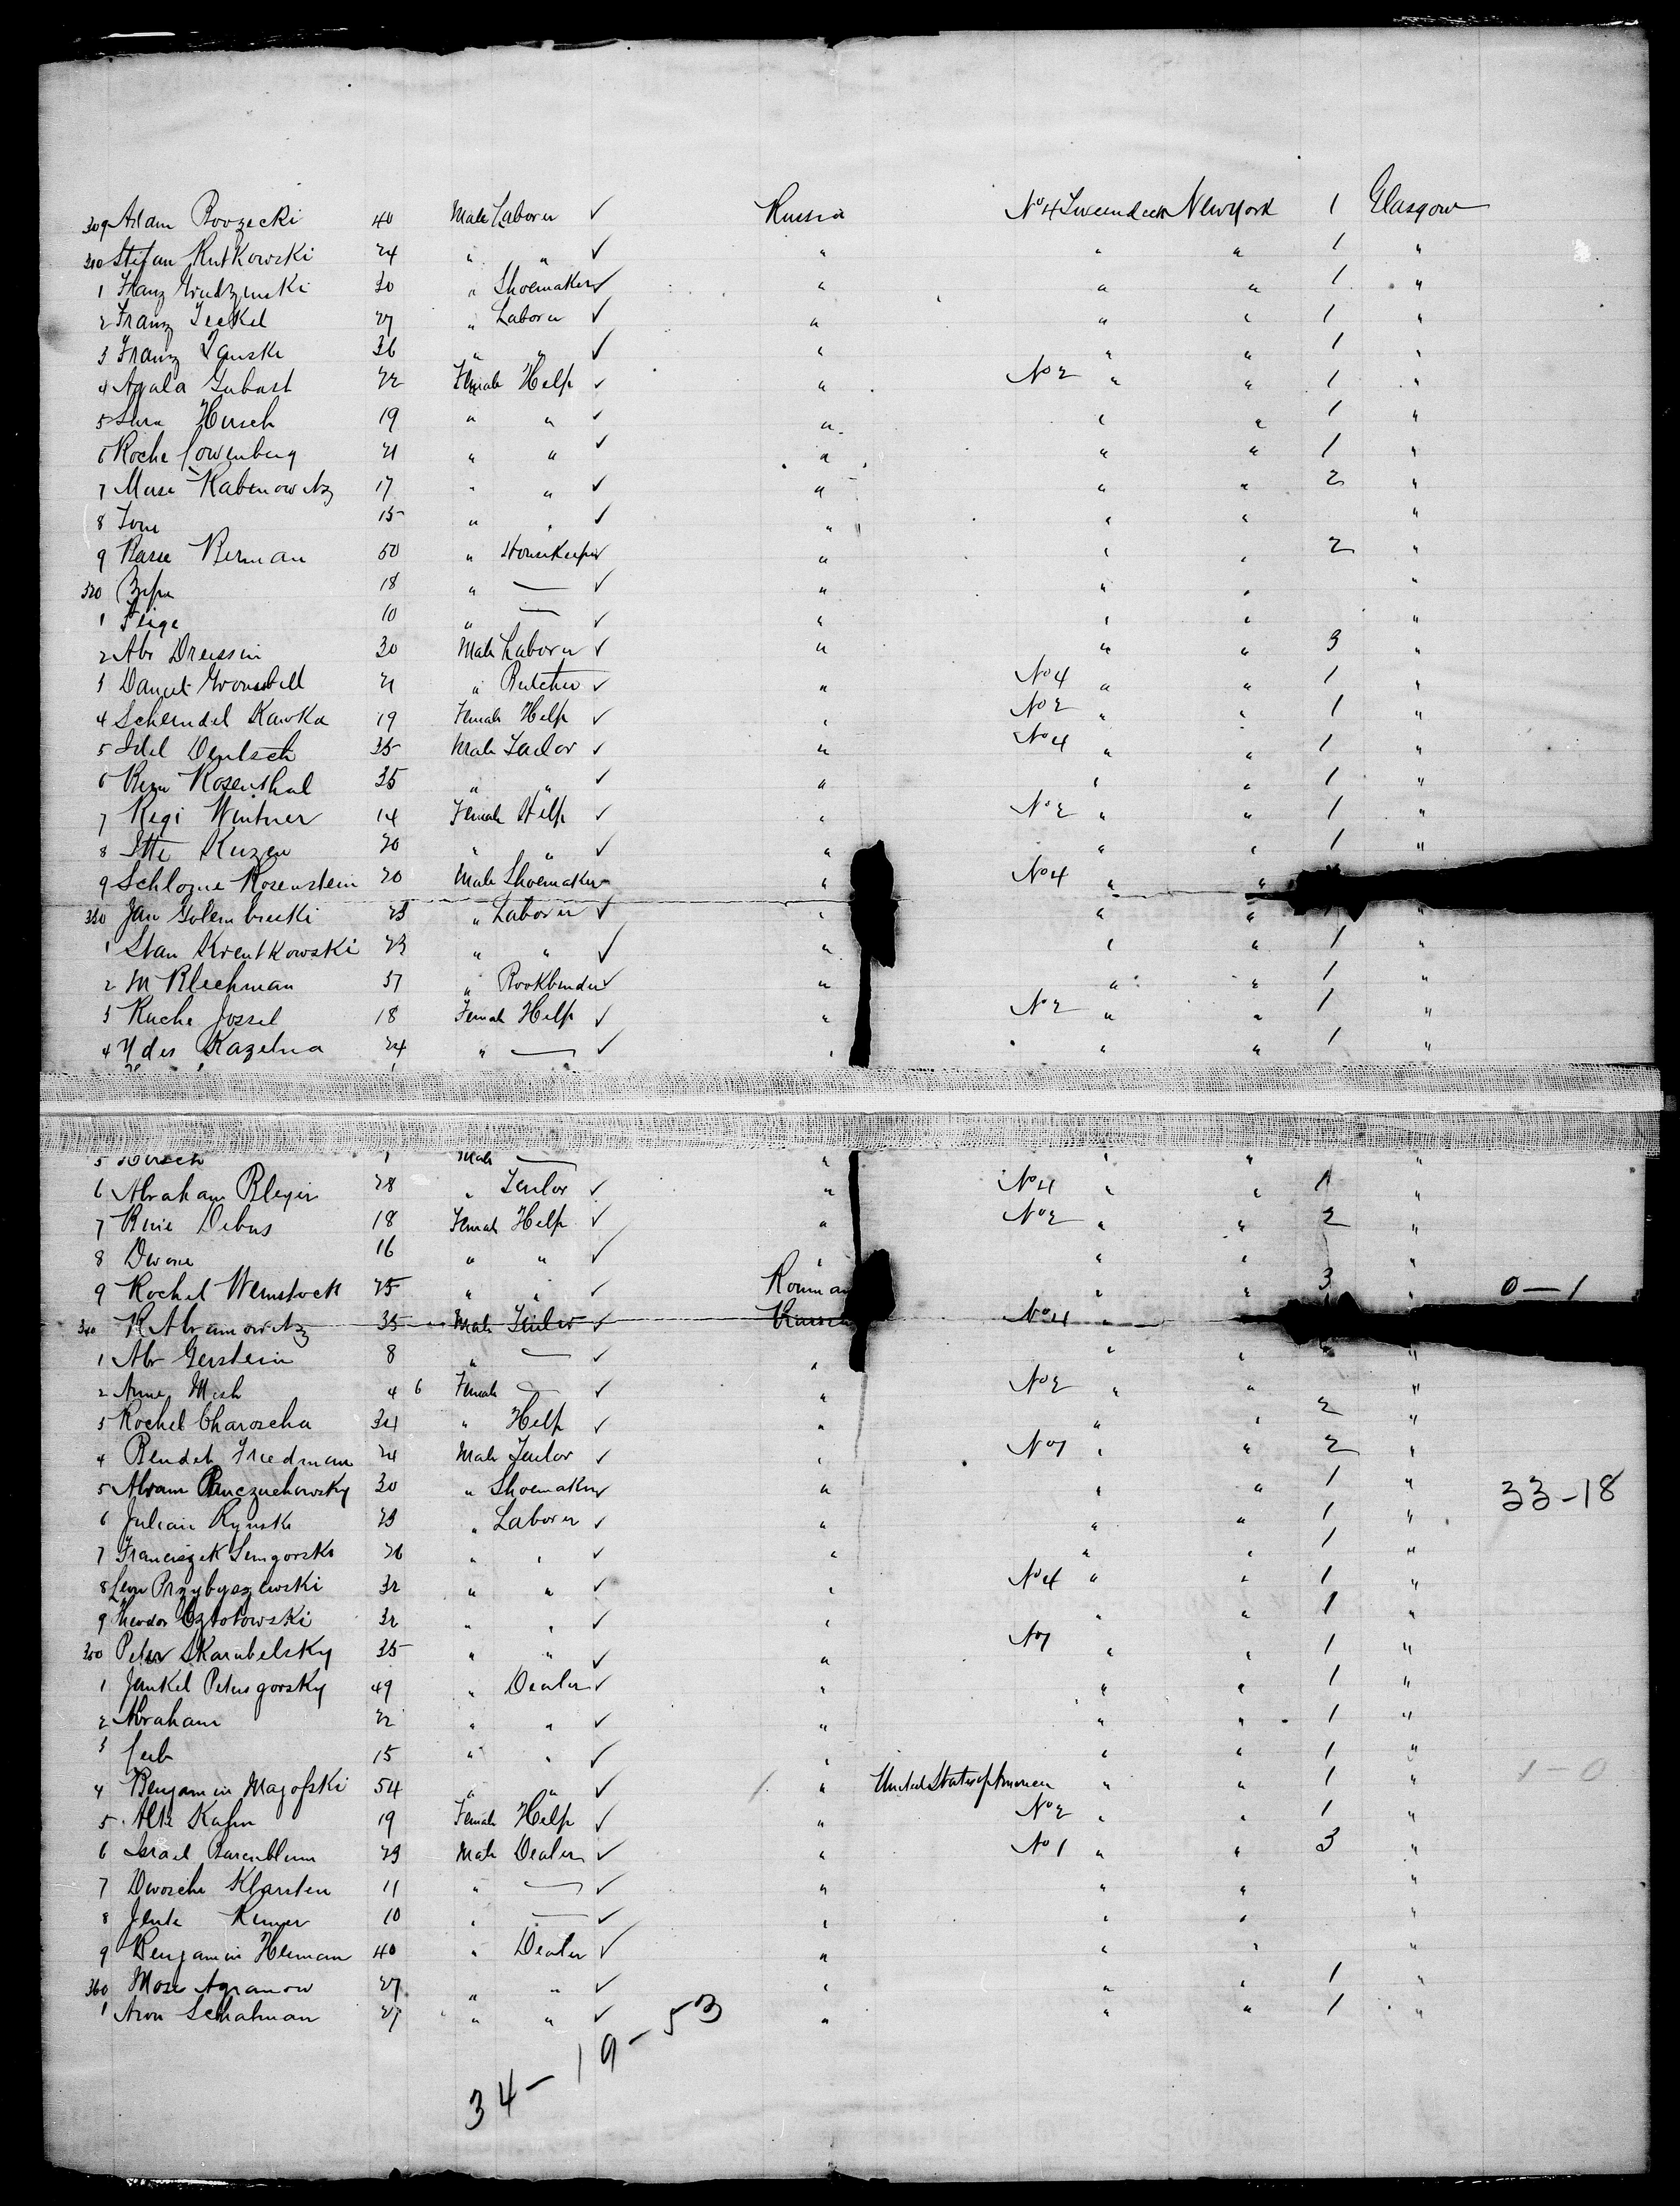 309 Adam Roozecki 40 Male Laborer ✓ Russia No 4 Tweendeck New York 1 Glasgow
310 Stefan Rutkowski 24 " " ✓ " " " 1 "
1 Franz 30 " Shoemaker ✓ " " " 1 "
2 Franz 27 " Laborer ✓ " " " 1 "
3 Franz 36 " " ✓ " " " 1 "
4 22 Female Help ✓ " No 2 " " 1 "
5 Sara Hirsch 19 " " ✓ " " " 1 "
6 Roche Lowenberg 21 " " ✓ " " " 1 "
7 Muse Rabinowitz 17 " " ✓ " " " 2 "
8 15 " " ✓ " " " "
9 Berman 50 " Housekeeper ✓ " " " 2 "
320 18 " — ✓ " " " "
1 Feige 10 " — ✓ " " " "
2 Abr 30 Male Laborer ✓ " " " 3 "
3 21 " Butcher ✓ " No 4 " " 1 "
4 Scheindel Kawka 19 Female Help ✓ " No 2 " " 1 "
5 Idel Deutsch 35 Male Tailor ✓ " No 4 " " 1 "
6 Rosenthal 35 " " ✓ " " " 1 "
7 Regi Wintner 14 Female Help ✓ " No 2 " " 1 "
8 Itte 20 " " ✓ " " " 1 "
9 Schlome Rosenstein 20 Male Shoemaker " No 4 " "
330 Jan Golembiecki 23 " Laborer ✓ " " " "
1 Stan Krentkowski 23 " " ✓ " " " 1 "
2 M Blechman 37 " Bookbinder ✓ " " " 1 "
3 Ruche Jossel 18 Female Help ✓ " No 2 " " 1 "
4 Ydes Kazelna 24 " — ✓ " " " 1 "
5 Hirsch 1 Male — " " " "
6 Abraham Bleyer 28 " Tailor ✓ " No 4 " " 1 "
7 Debus 18 Female Help ✓ " No 2 " " 2 "
8 16 " " ✓ " " " "
9 Rochel Weinstock 25 " " ✓ " " 3 " 0 — 1
340 R Abramowitz 35 Male Tailor ✓ No 4 "
1 Abr Gerstein 8 " — ✓ " " " "
2 4 6 Female — ✓ " No 2 " " "
3 Rochel Charoscha 34 " Help ✓ " " " 2 "
4 Friedman 24 Male Tailor ✓ " No 1 " " 2 "
5 Abram 30 " Shoemaker ✓ " " " 1 " 33-18
6 Julian Rynski 23 " Laborer ✓ " " " 1 "
7 Franciszek 26 " " ✓ " " " 1 "
8 Leon Przybyszewski 32 " " ✓ " No 4 " " 1 "
9 Theodor 32 " " ✓ " " " 1 "
350 Peter Skarubelsky 35 " " ✓ " No 1 " " 1 "
1 Jankel Petersgorsky 49 " Dealer ✓ " " " 1 "
2 Abraham 22 " " ✓ " " " 1 "
3 Leib 15 " " ✓ " " " 1 "
4 Benjamin Magofski 54 " " ✓ 1 " United States of America " " 1 " 1-0
5 Alte Kahn 19 Female Help ✓ " No 2 " " 1 "
6 Israel 23 Male Dealer ✓ " No 1 " " 3 "
7 Dwosche Klarsten 11 " — ✓ " " " "
8 10 " — ✓ " " " "
9 Benjamin Herman 40 " Dealer ✓ " " " "
360 Mose Agranow 27 " " ✓ " " " 1 "
1 Aron Schatman 27 " " ✓ " " " 1 "
34-19-53